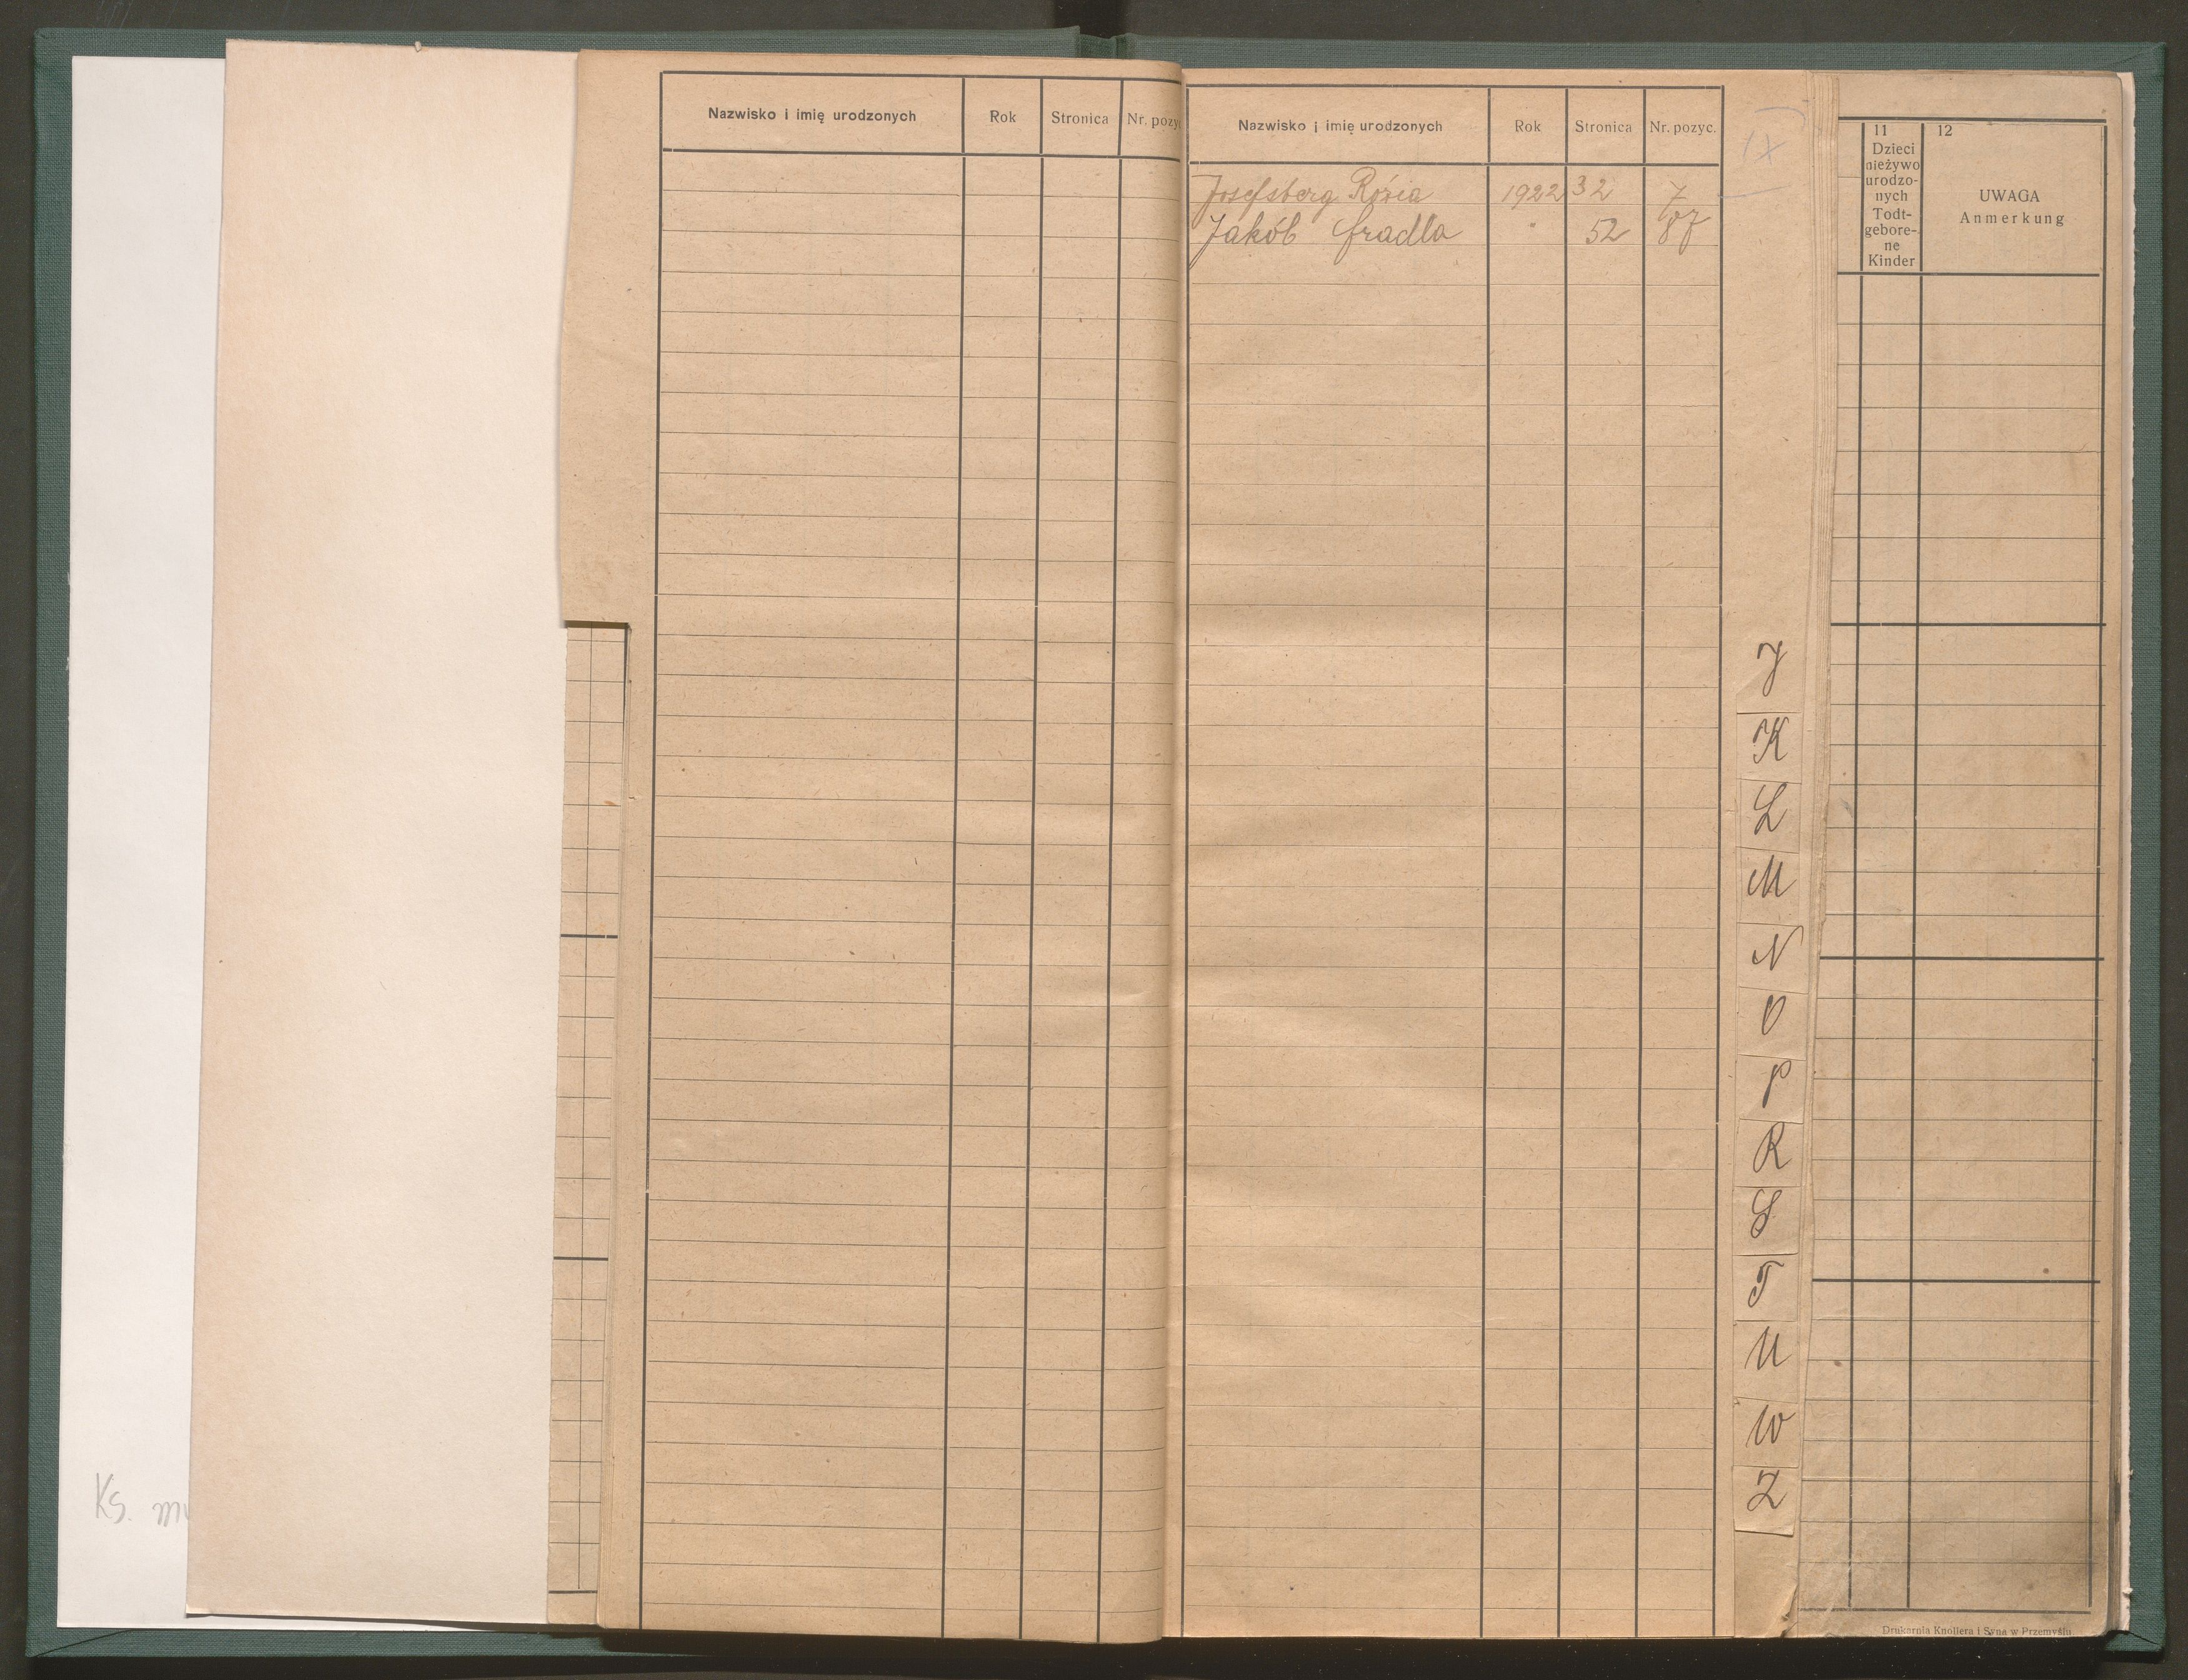 Nazwisko i imię urodzonych Rok Stronica Nr. pozyc
Nazwisko i imię urodzonych Rok Stronica Nr. pozyc.
Josefsberg Rózia 1922 32 7
Jakób Fradla " 52 87
IX
J
K
L
M
N
O
P
R
S
T
U
W
Z
11
Dzieci
nieżywo
urodzo-
nych
Todt-
gebore-
ne
Kinder
12
UWAGA
Anmerkung
Ks.
Drukarnia Knollera i Syna w Przemyślu